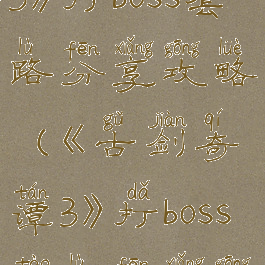 3》打boss套
lù fēn xiǎng gōng lüè
路分享攻略
gǔ jiàn qí
(《古剑奇
tán dǎ
谭3》打boss
tào lù fēn xiǎng gōng